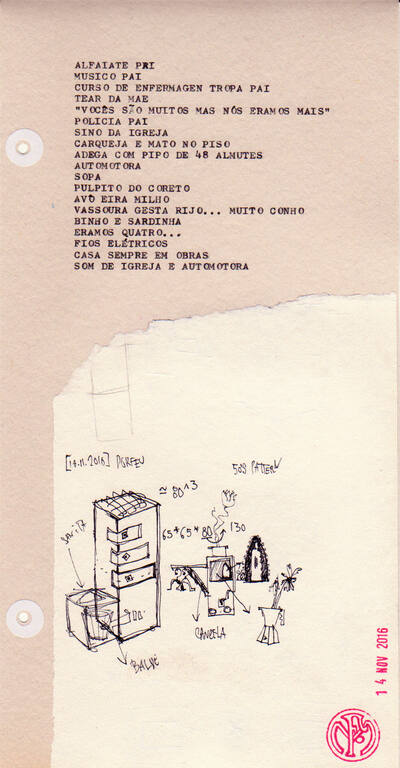 ALFAIATE PRI
MUSICO PAI
CURSO DE ENFERMAGEN TROPA PAI
TEAR DA MAE
"VOCÊS SÃO MUITOS MAS NÓS ERAMOS MAIS"
POLICIA PAI
SINO DA IGREJA
CARQUEJA E MATO NO PISO
ADEGA COM PIPO DE 48 ALMUTES
AUTOMOTORA
SOPA
PULPITO DO CORETO
AVÔ EIRA MILHO
VASSOURA GESTA RIJO... MUITO CONHO
BINHO E SARDINHA
ERAMOS QUATRO...
FIOS ELÉTRICOS
CASA SEMPRE EM OBRAS
SOM DE IGREJA E AUTOMOTORA
[14.11.2016]
≃ 80^3
65*65*80
130
CANDELA
14 NOV 2016